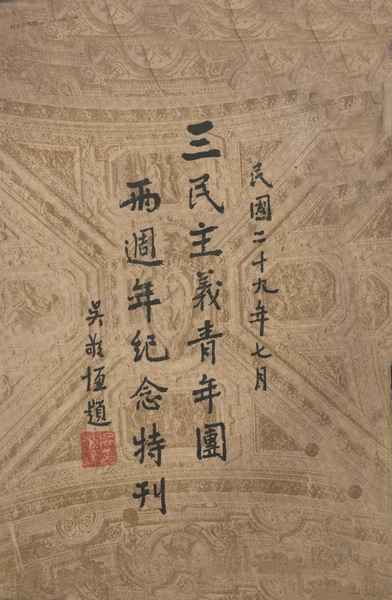 民國二十九年七月
三民主義青年團
兩週年紀念特刊
吳敬恆題